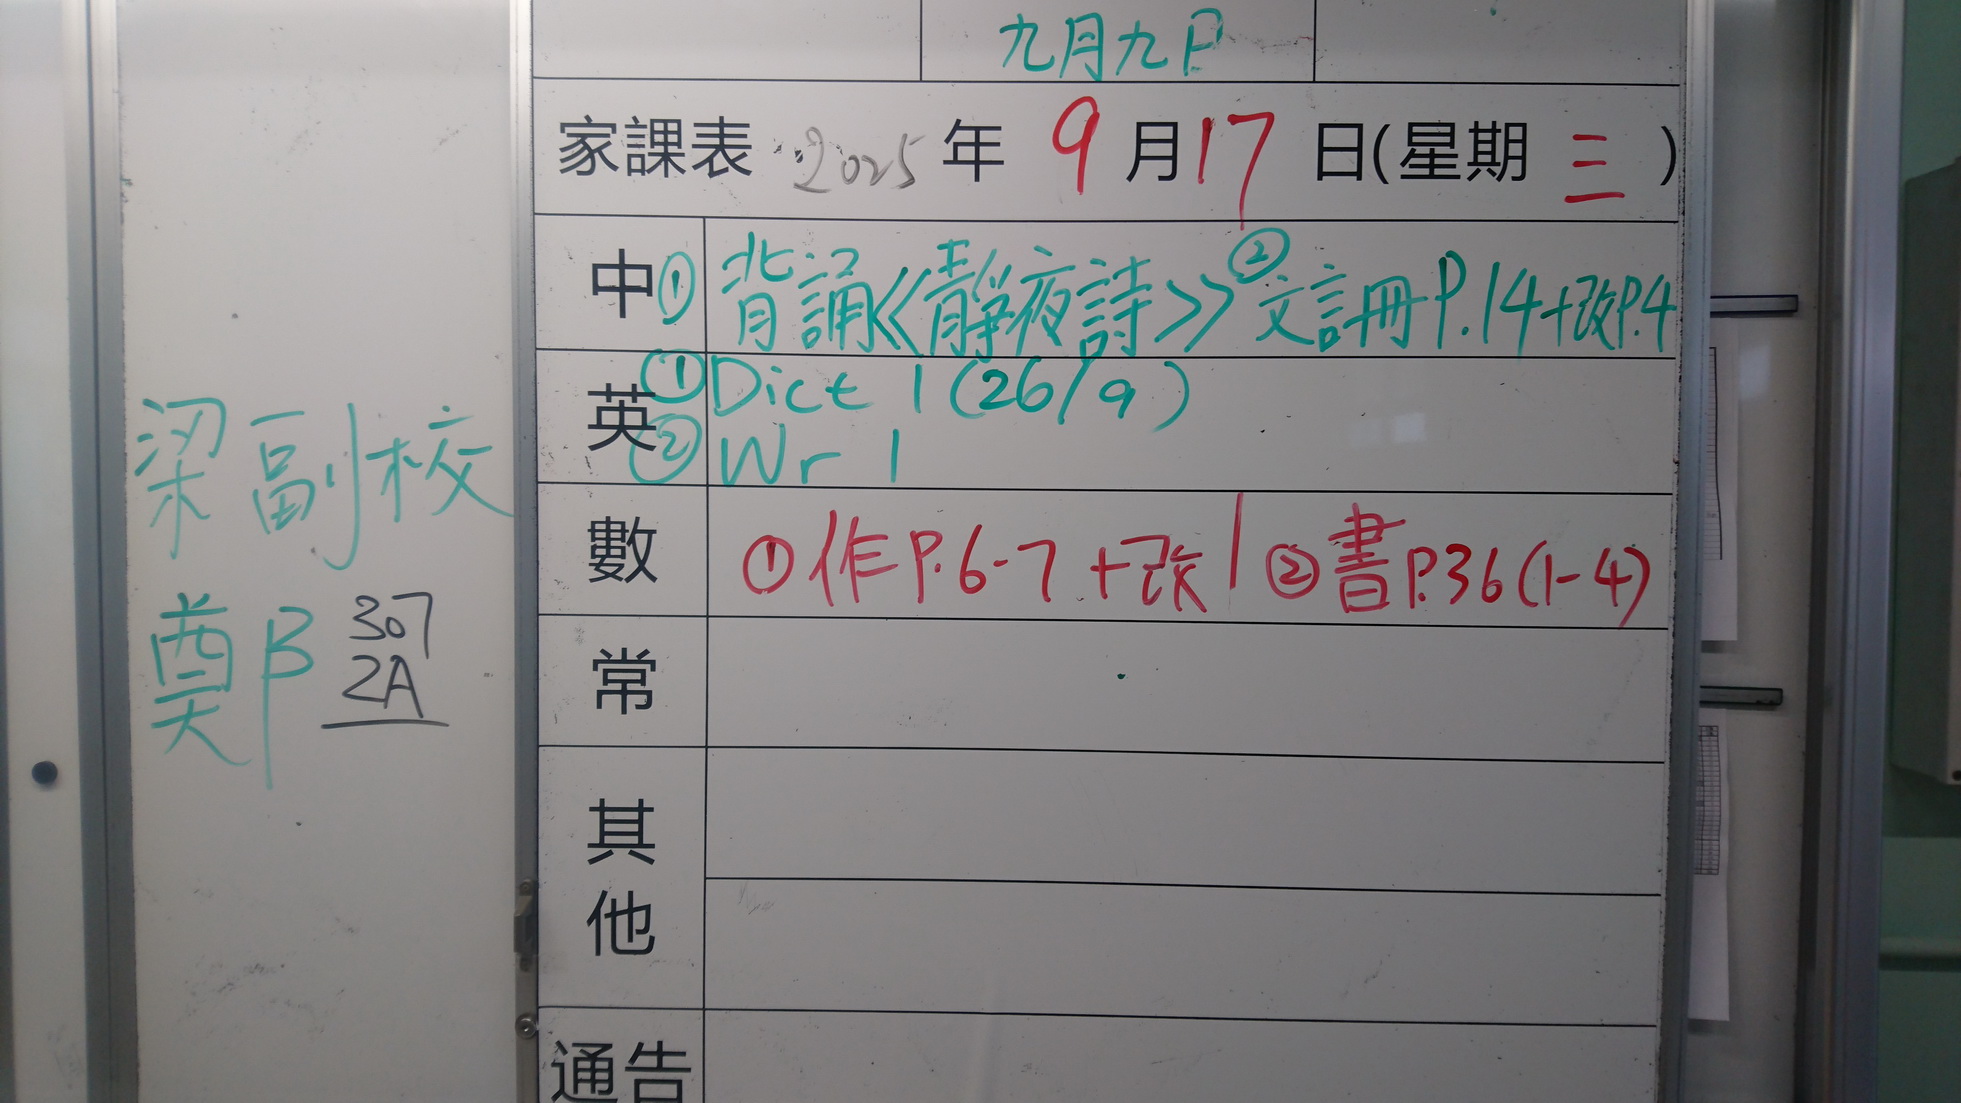 九月九日
家課表 2025 年 9 月 17 日(星期 三 )
中 ① 背誦《靜夜詩》 ② 文言冊 P.14+改P.4
英 ① Dict 1 (26/9)
② Wr 1
數 ① 作 P.6-7 +改 | ② 書 P.36 (1-4)
常
其他
通告
梁副校
鄭 307
2A